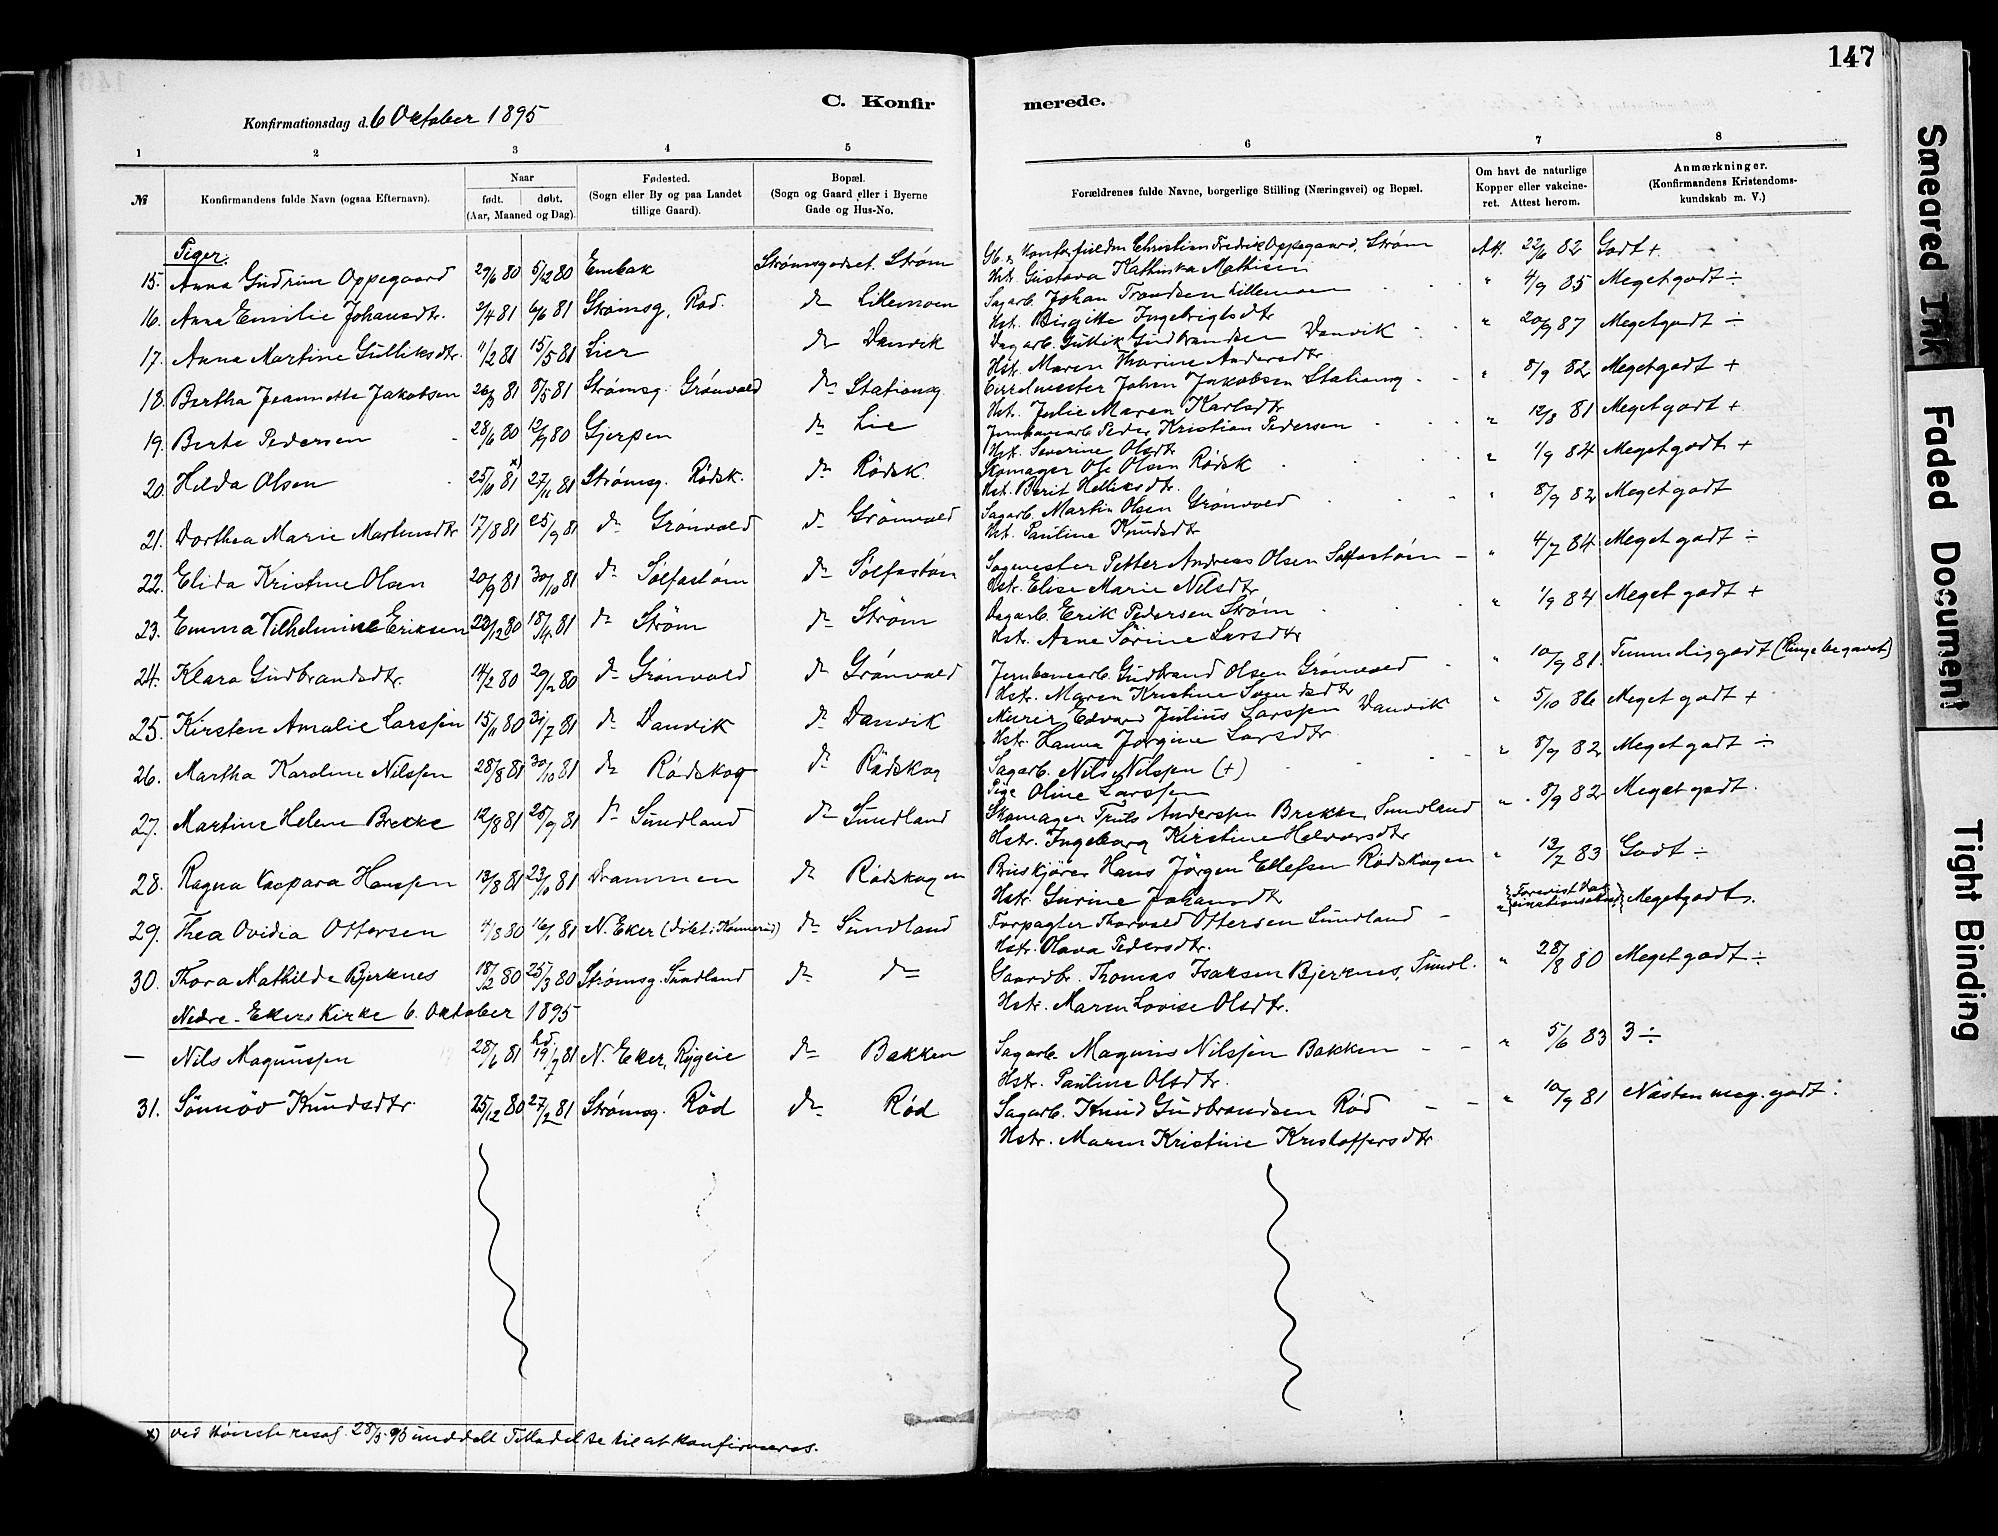 147
C. Konfirmerede.
Konfirmationsdag d. 6 Oktober 1895
1 2 3 4 5 6 7 8
№ Konfirmandens fulde Navn (ogsaa Efternavn). Naar født. døbt. (Aar, Maaned og Dag). Fødested. (Sogn eller By og paa Landet tillige Gaard). Bopæl. (Sogn og Gaard eller i Byerne Gade og Hus-No. Forældrenes fulde Navne, borgerlige Stilling (Næringsvei) og Bopæl. Om havt de naturlige Kopper eller vakcineret. Attest herom. Anmærkninger. (Konfirmandens Kristendomskundskab m. V.)
Piger.
15. Anna Gudrun Oppegaard 29/6 80 5/12 80 Strømsgodset. Strøm Christian Fredrik Oppegaard, Strøm Att. 22/6 82 Godt +
Hst. Gustava Kathinka Mathisen
16. Anna Emilie Johansdtr. 2/4 81 6/6 81 Strømsg. Rød. do Lillemoen Sagarb. Johan Trondsen Lillemoen " 4/9 85 Meget godt ÷
Hst. Birgitte Ingebrigtsdtr
17. Anna Martine Gulliksdtr. 11/2 81 15/5 81 Lier do Danvik Dagarb. Gullik Gudbrandsen Danvik " 20/9 87 Meget godt ÷
Hst. Maren Thorine Andersdtr
18. Bertha Jeannette Jakobsen 26/3 81 8/5 81 Strømsg. Grønvold do Stationsg. Johan Jakobsen Stationsg " 8/9 82 Meget godt +
Hst. Julie Maren Karlsdtr
19. Berte Pedersen 28/6 80 12/9 80 Gjerpen do Lie Jernbanearb. Peder Kristian Pedersen " 12/8 81 Meget godt +
Hst. Severine Olsdtr
20. Hilda Olsen 25/10 81 x) 27/11 81 Strømsg. Rödsk. do Rödsk. Skomager Ole Olsen Rödsk " 1/9 84 Meget godt +
Hst. Berit Helliksdtr.
21. Dorthea Marie Martinsdtr 17/8 81 25/9 81 do Grönvold do Grönvold Sagarb. Martin Olsen Grönvold " 8/9 82 Meget godt
Hst. Pauline Knudsdtr
22. Elida Kristine Olsen 20/9 81 30/10 81 do Solfastøm do Solfastøn Sagmester Petter Andreas Olsen Solfastøm " 4/7 84 Meget godt ÷
Hst. Elise Marie Nilsdtr
23. Emma Vilhelmine Eriksen 23/12 80 18/4 81 do Ström do Ström Dagarb. Erik Pedersen Strøm " 1/9 84 Meget godt +
Hst. Anne Sörine Larsdtr
24. Klara Gudbrandsdtr. 14/2 80 29/2 80 do Grönvold do Grönvold Jernbanearb. Gudbrand Olsen Grönvold " 10/9 81 Temmelig godt
Hst. Maren Kristine Svendsdtr
25. Kirsten Amalie Larssen 15/11 80 31/7 81 do Danvik do Danvik Murer Edvard Julius Larssen Danvik " 5/10 86 Meget godt +
Hst. Hanna Jørgine Larsdtr
26. Martha Karoline Nilssen 28/8 81 30/10 81 do Rödskog do Rödskog Sagarb. Nils Nilssen (+) " 8/9 82 Meget godt ÷
Pige Oline Larssen
27. Martine Helene Brekke 12/8 81 25/9 81 do Sundland do Sundland Skomager Truls Anderssen Brekke, Sundland " 8/9 82 Meget godt.
Hst. Ingeborg Kirstine Halvorsdtr
28. Ragna Kaspara Hanssen 13/8 81 23/10 81 Drammen do Rödskogen Hans Jörgen Ellefsen Rödskogen " 13/7 83 Godt ÷
Hst. Gurine Johansdtr
29. Thea Ovidia Ottersen 4/8 80 16/1 81 N. Eker (døbt i Konnerud) do Sundland Forpagter Thorvald Ottersen Sundland " Meget godt.
Hst. Olava Pedersdtr.
30. Thora Mathilde Bjerknes 18/2 80 25/3 80 Strømsg. Sundland do do Gaardbr. Thomas Isaksen Bjerknes, Sundl. " 28/8 80 Meget godt ÷
Hst. Maren Lovise Olsdtr.
Nedre-Ekers Kirke 6. Oktober 1895
— Nils Magnussen 28/6 81 hd. 19/7 81 N. Eker, Rygeie do Bakken Sagarb. Magnus Nilssen Bakken " 5/6 83 3 ÷
Hst. Pauline Olsdtr.
31. Sönnöv Knudsdtr 25/12 80 27/2 81 Strømsg. Röd do Röd Sagarb. Knud Gudbrandsen Röd " 10/9 81 Næsten meg. godt.
Hst. Maren Kristine Kristoffersdtr
x) ved Høieste resol. 28/3 95 meddelt Tilladelse til at konfirmeres.
Smeared Ink
Faded Document
Tight Binding